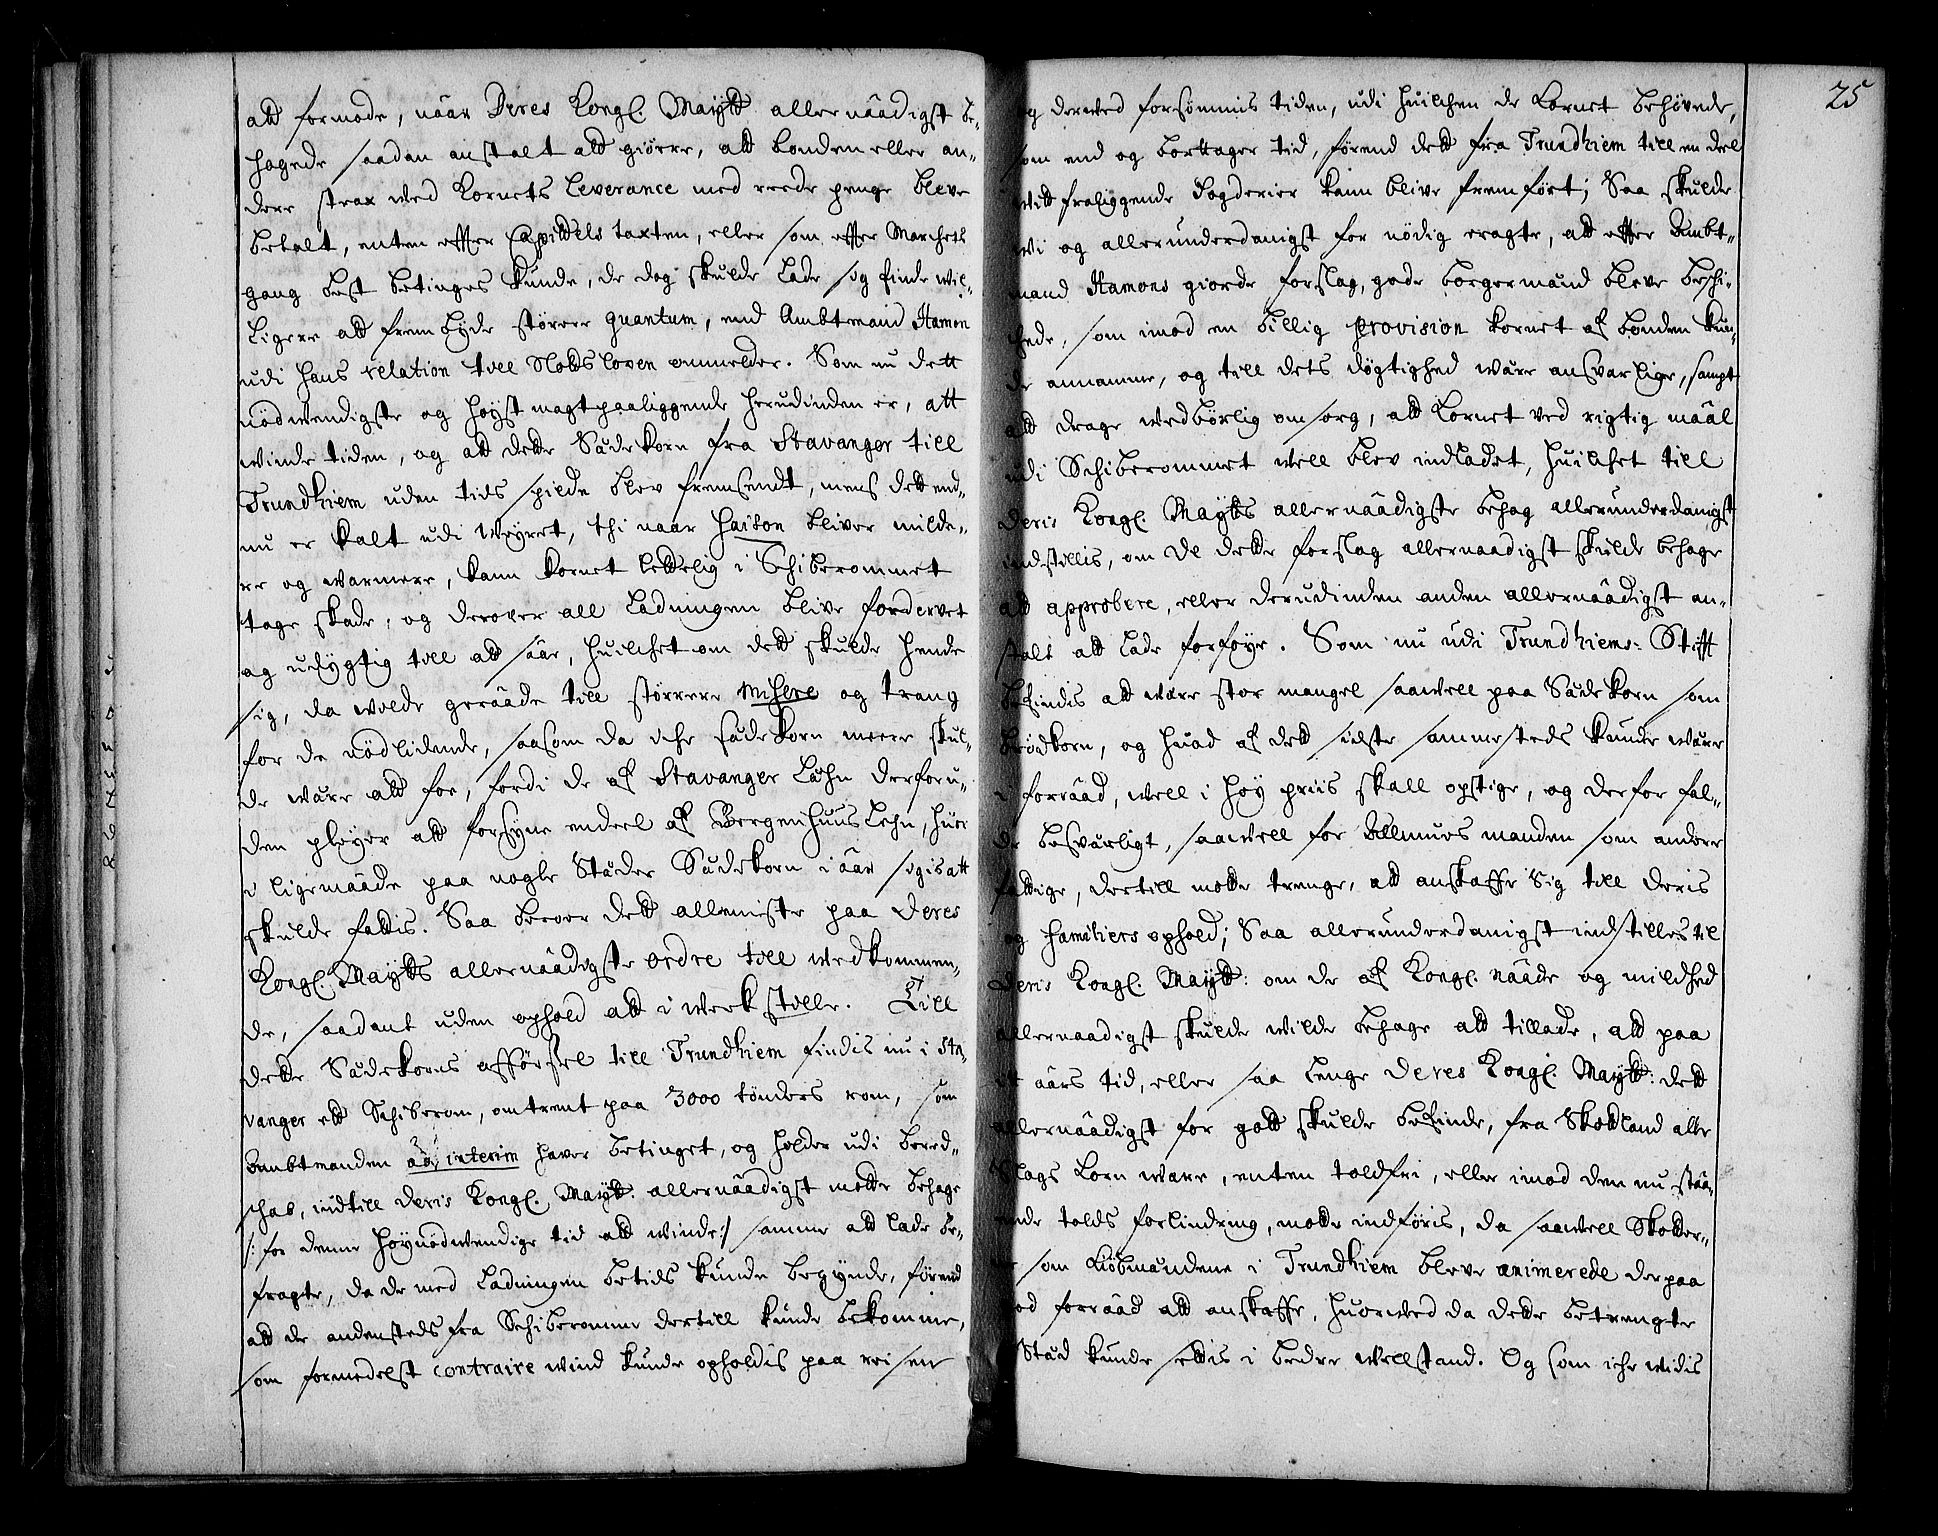 att formode, näar Deres Kongl. Maytt allernäadigst be-
hagede saadan anstalt att giörre, att bonden eller an-
dere strax wed Kornets leverance med reede penge bleve
betalt, enten effter Capittels taxten, eller som effter Marchets
gang best betinges kunde, de dog skulde lade sig finde wil-
ligere att frembyde större quantum, end Ambtmand Hamon
udi hans relation till Slotsloven ommelder. Som nu dett
nödwendigste og höyst magtpaaliggende herudinden er, att
winde tiden, og att dette Sædekorn fra Stavanger till
Trundhiem uden tids spilde blev fremsendt, mens dett end-
nu er kalt udi weyret, thi naar Saison bliver milde-
re og warmere, kann kornet lettelig i Schiberommet
tage skade, og derover all ladningen blive fordervet
og udygtig till att säar, huilchet om dett skulde hende
sig, da wolde geraade till störrere misere og trang
for de nödlidende, saasom da iche sædekorn meere skul-
de wære att foe, fordi de af Stavanger Læhn derforu-
den pleyer att forsyne endeel af Bergenhuus Lehn, huor
i ligemaade paa nogle Stæder Sædekorn i aar sigis att
skulde fattis. Saa beroer dett allermeste paa Deres
Kongl. Maytts allernäadigste ordre till wedkommen-
de, saadant uden ophold att i werk stille. Till
dette Sædekorns afförsel till Trundhiem findis nu i Sta-
vanger ett Schiberom, omtrent paa 3000 tönders rom, som
Ambtmanden ad interim haver betinget, og holder udi bered-
schab, indtill deris Kongl. Maytt. allernäadigst motte behage
/: for denne höynödwendige tid att winde :/ samme att lade be-
fragte, da de med ladningen betids kunde begynde, förend
att de andensteds fra Schiberomme dertill kunde bekomme,
som formedelst contraire wind kunde opholdis paa reisen
25
og derwed forsömmis tiden, udi huilchen de Kornet behövede,
som end og borttager tid, förend dett fra Trundhiem till en deel
witt fraliggende fogderier kann blive fremfört; Saa skulde
wi og allerunderdanigst for nödig eragte, att effter Ambt-
mand Hamons giorde forslag, gode borgermænd bleve beschi-
chede, som imod en billig provision kornet af bonden kun-
de annamme, og till dets dögtighed wære answarlige, sampt
att drage wedbörlig omsorg, att Kornet ved rigtig määl
udi Schiberommet well blev indladet, huilchet till
Deris Kongl. Maytts allernäadigste behag allerunderdanigst
indstillis, om De dette forslag allernaadigst skulde behage
att approbere, eller derudinden anden allernäadigst an-
stalt att lade forföye. Som nu udi Trundhiems: Stifft
befindis att være stor mangel saawell paa Sædekorn som
brödkorn, og huad af dett sidste sammesteds kunde wære
i forräad, well i höy priis skall opstige, og derfor fal-
de beswærligt, saawell for Allmues manden som andre
fattige, dertill motte trenge, att anskaffe Sig till deris
og Familiers ophold; Saa allerunderdanigst indstilles til
Deris Kongl. Maytt: om de af Kongl. näade og mildhed
allernaadigst skulde wilde behage att tillade, att paa
et äars tid, eller saa lenge Deres Kongl. Maytt: dett
allernäadigst for gott skulde befinde, fra Skottland alle
Slags Korn ware, enten toldfri, eller imod den nu stää-
ende tolds forlindring, motte indföris, da saawell Skotter-
ne som Kiöbmændene i Trundhiem bleve animerede derpaa
god forräad att anskaffe, huorwed da dette betrengte
Stæd kunde settis i bedre wellstand. Og som iche widis